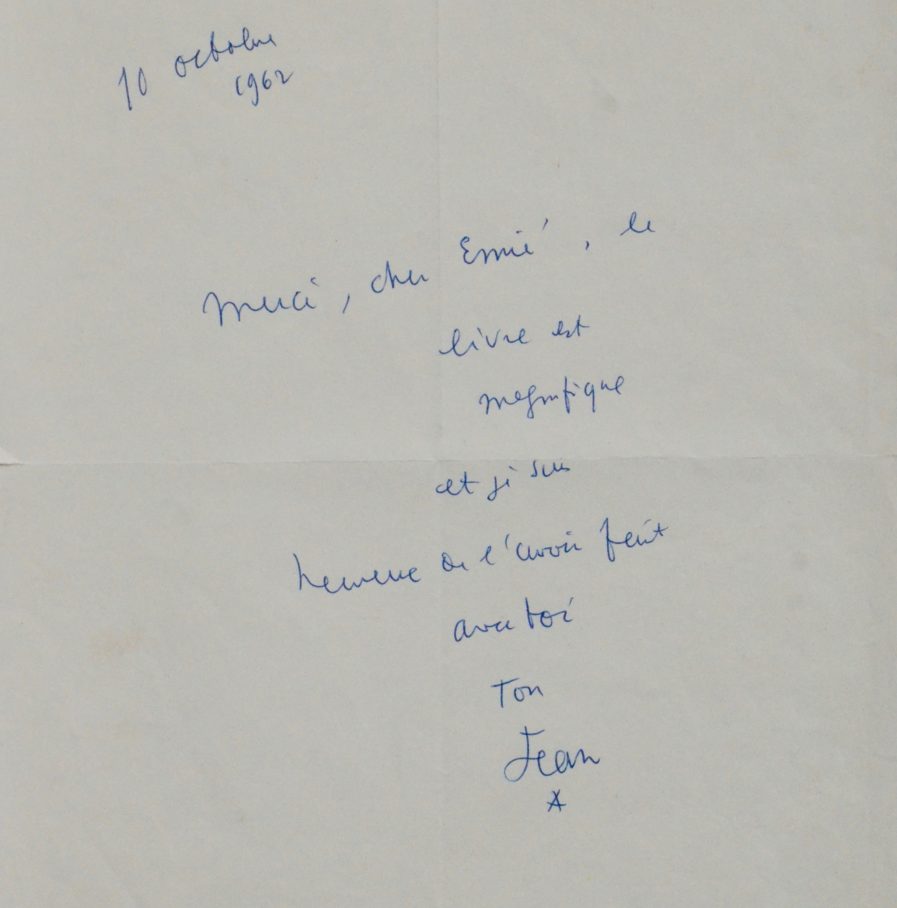 10 octobre
1962
Merci, cher Emié, le
livre est
magnifique
et je suis
heureux de l'avoir fait
avec toi
Ton
Jean